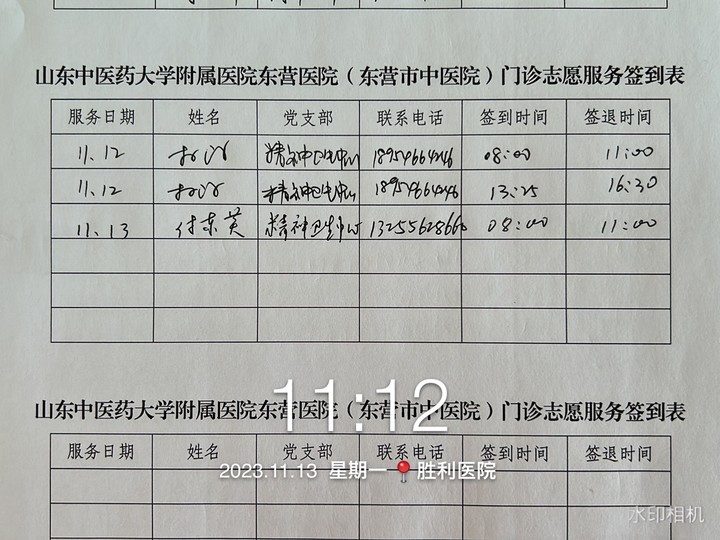 山东中医药大学附属医院东营医院（东营市中医院）门诊志愿服务签到表
服务日期 姓名 党支部 联系电话 签到时间 签退时间
11.12 精神卫生中心 18954664246 08:00 11:00
11.12 精神卫生中心 18954664246 13:25 16:30
11.13 付东英 精神卫生中心 13255628660 08:00 11:00
11:12
山东中医药大学附属医院东营医院（东营市中医院）门诊志愿服务签到表
服务日期 姓名 党支部 联系电话 签到时间 签退时间
2023.11.13 星期一 胜利医院
水印相机